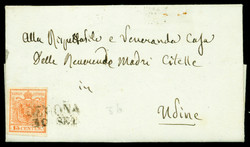 Alla Rispettabile e Veneranda Casa
Delle Reverende Madri Citelle
in
Udine
VERONA
SET.